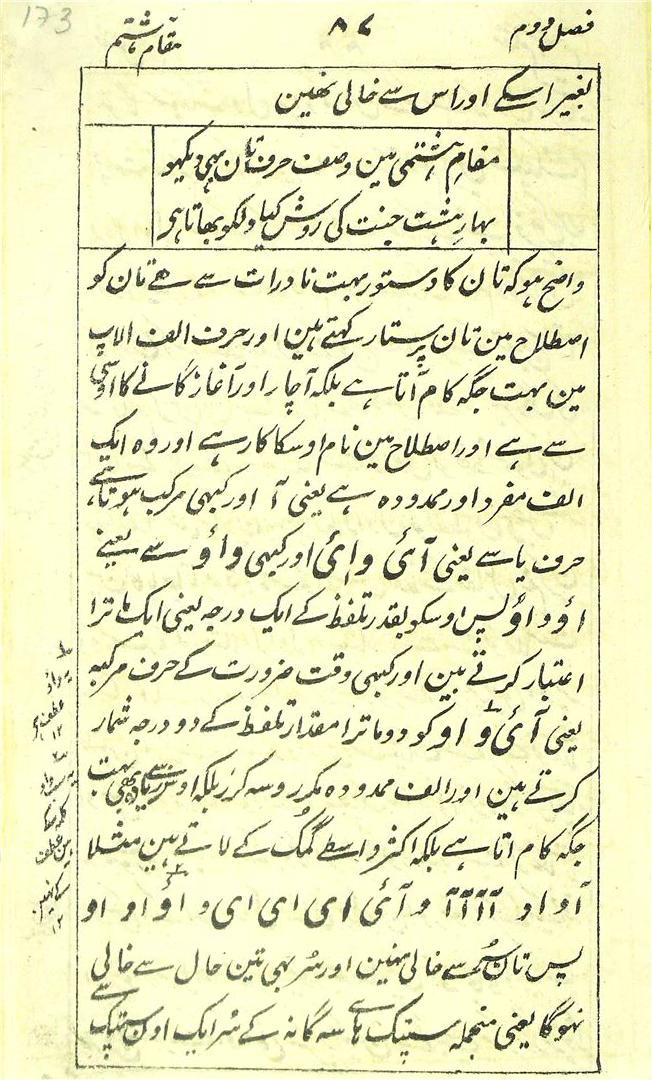 173
فصل دوم ۸۷ مقام ہشتم
بغیر اسکے اور اس سے خالی نھین
مقامِ ہشتمی مین وصفِ حرف تان بھی دیکھو
بہارِ ہشت جنت کی روش کیا دلکو بھاتا ہی
واضح ہو کہ تان کا دستور بہت نادرات سے ہے تان کو
اصطلاح مین تان پرستار کہتے ہین اور حرف الف الاپ
مین بہت جگہ کام آتا ہے بلکہ آچار اور آغاز گانے کا اوسی
سے ہے اور اصطلاح مین نام اوسکا کار ہے اور وہ ایک
الف مفرد اور ممدودہ ہے یعنی آ اور کبھی مرکب ہوتا ہے
حرف یا سے یعنی آئی و اِئی اور کبھی واؤ سے یعنے
اؤ و اؤ پس اوسکو بقدر تلفظ کے ایک درجہ یعنی ایک ماترا
اعتبار کرتے ہین اور کبھی وقت ضرورت کے حرف مرکبہ
یعنی آئی و او کو دو ماترا مقدار تلفظ کے دو درجہ شمار
کرتے ہین اور الف ممدودہ مکرر و سہ کرر بلکہ اوس سے زیادہ بھی بہت
جگہ کام اتا ہے بلکہ اکثر واسطے گمک کے لاتے ہین مثلا
آ و ا و آآآآ و آئی ای ای ای و اؤ او او
پس تان سُر سے خالی نہین اور سُر بھی تین حال سے خالی
نہوگا یعنی منجملہ سپتک ہاے سہ گانہ کے سُر ایک اون سپتک سے